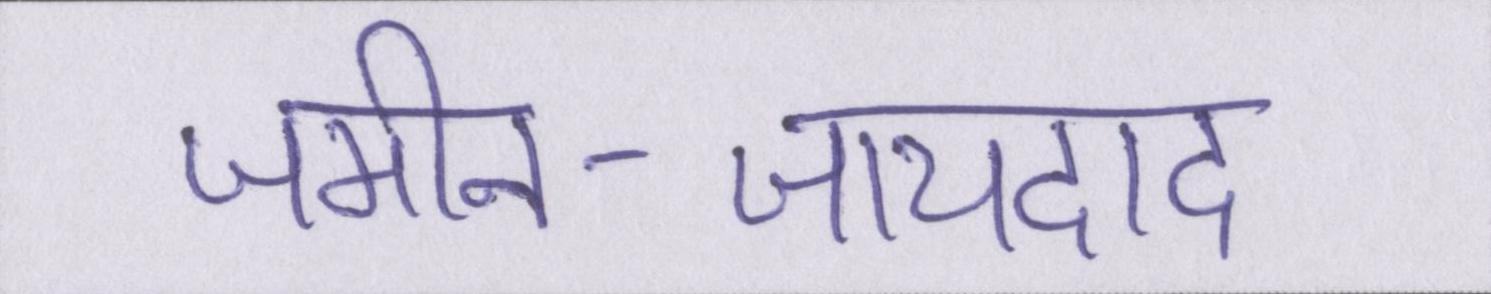 जमीन-जायदाद